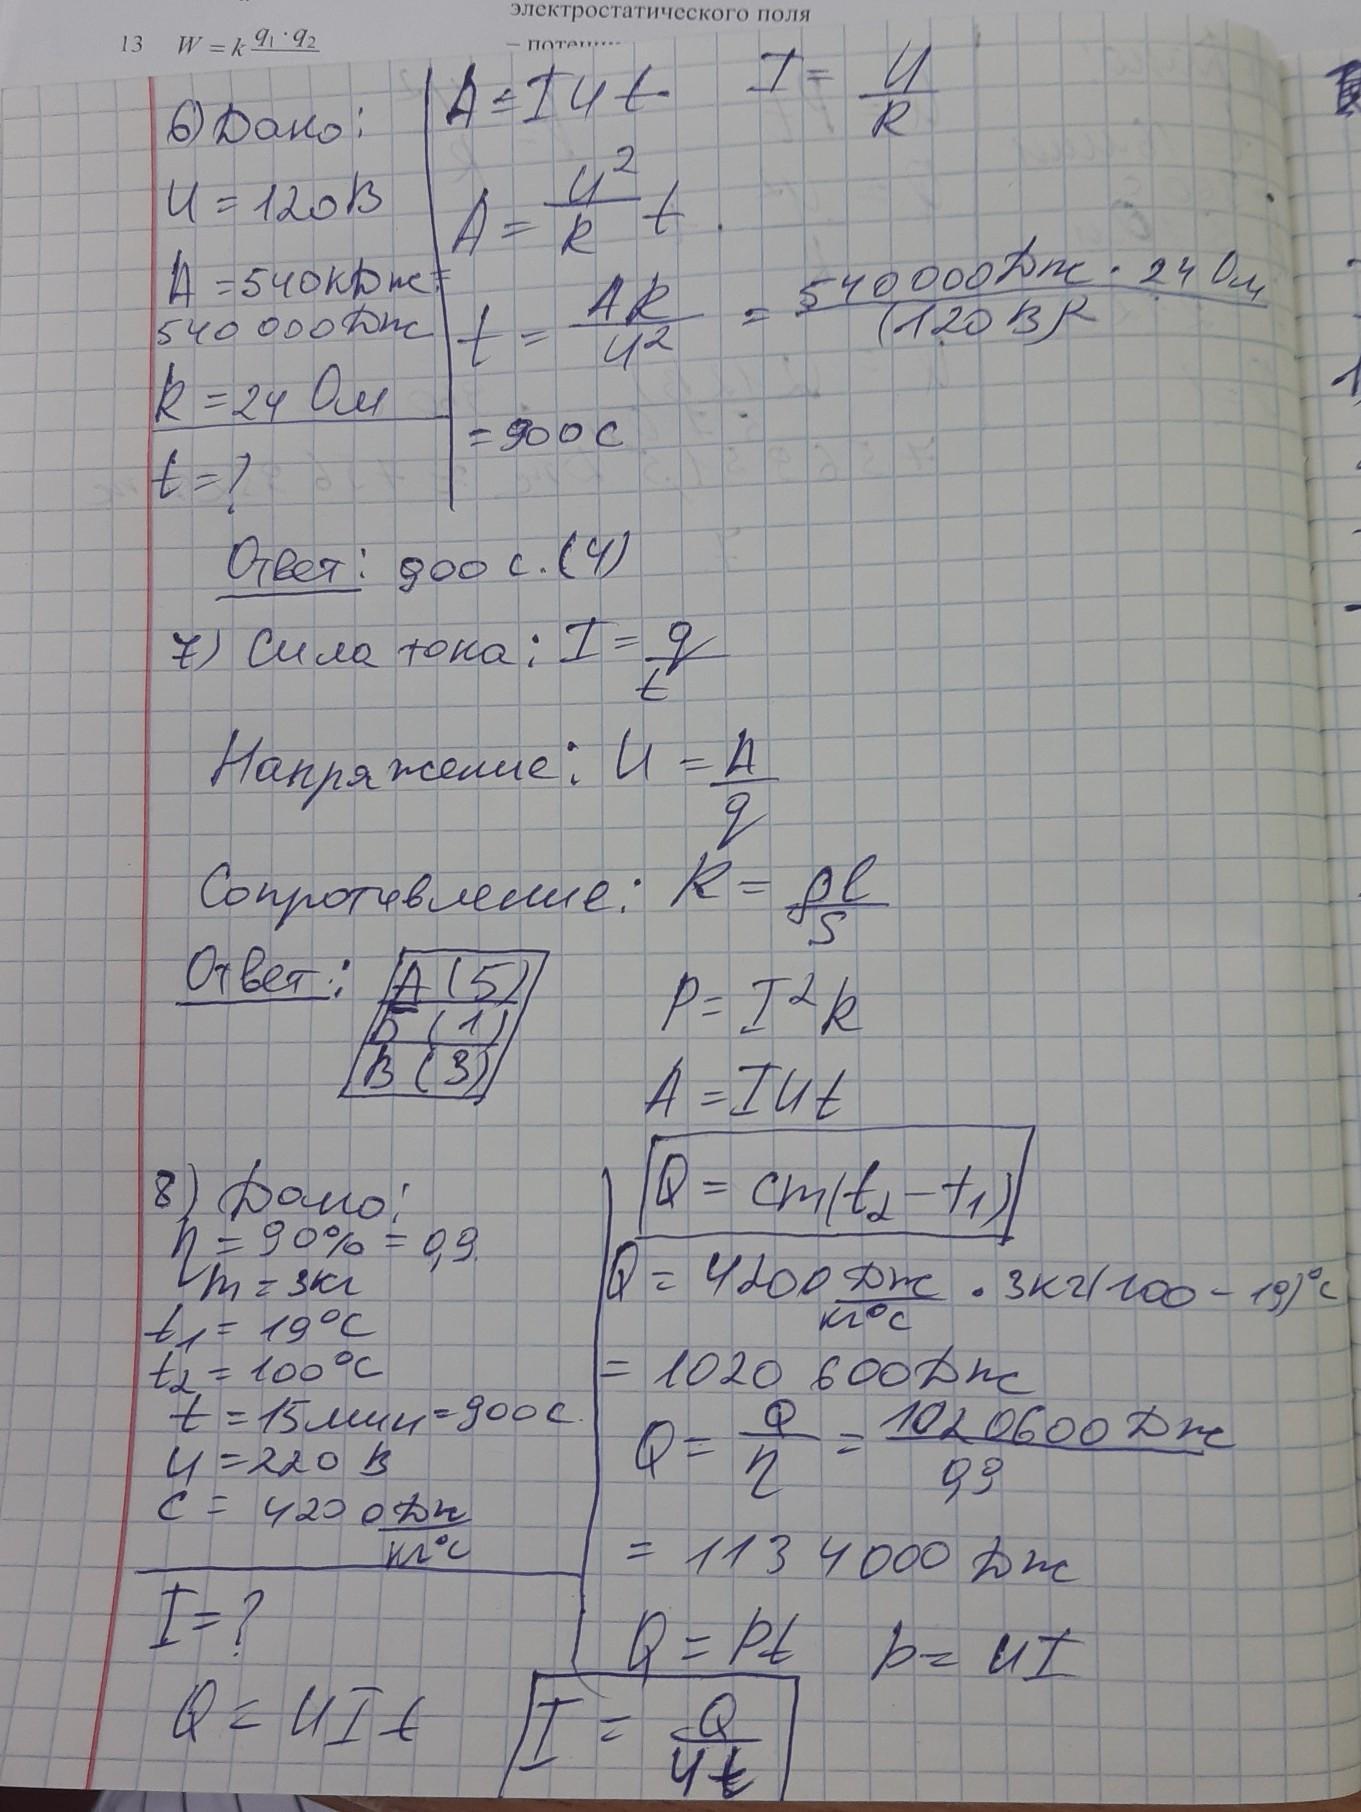 электростатического поля
13 W = k q₁·q₂
6) Дано:
U = 120 В
A = 540 кДж =
540 000 Дж
R = 24 Ом
t = ?
A = IUt I = U/R
A = U²/R t
t = AR/U² = 540 000 Дж · 24 Ом/(120 В)²
= 900 с
Ответ: 900 с. (4)
7) Сила тока: I = q/t
Напряжение: U = A/q
Сопротивление: R = ρl/S
Ответ: А (5)
Б (1)
В (3)
P = I²R
A = IUt
8) Дано:
η = 90% = 0,9
m = 3 кг
t₁ = 19°C
t₂ = 100°C
t = 15 мин = 900 с.
U = 220 В
c = 4200 Дж/кг°C
I = ?
Q = UIt
Q = cm(t₂ - t₁)
Q = 4200 Дж/кг°C · 3 кг(100 - 19)°C
= 1020 600 Дж
Q = Q/η = 1020600 Дж/0,9
= 1134000 Дж
Q = Pt P = UI
I = Q/Ut